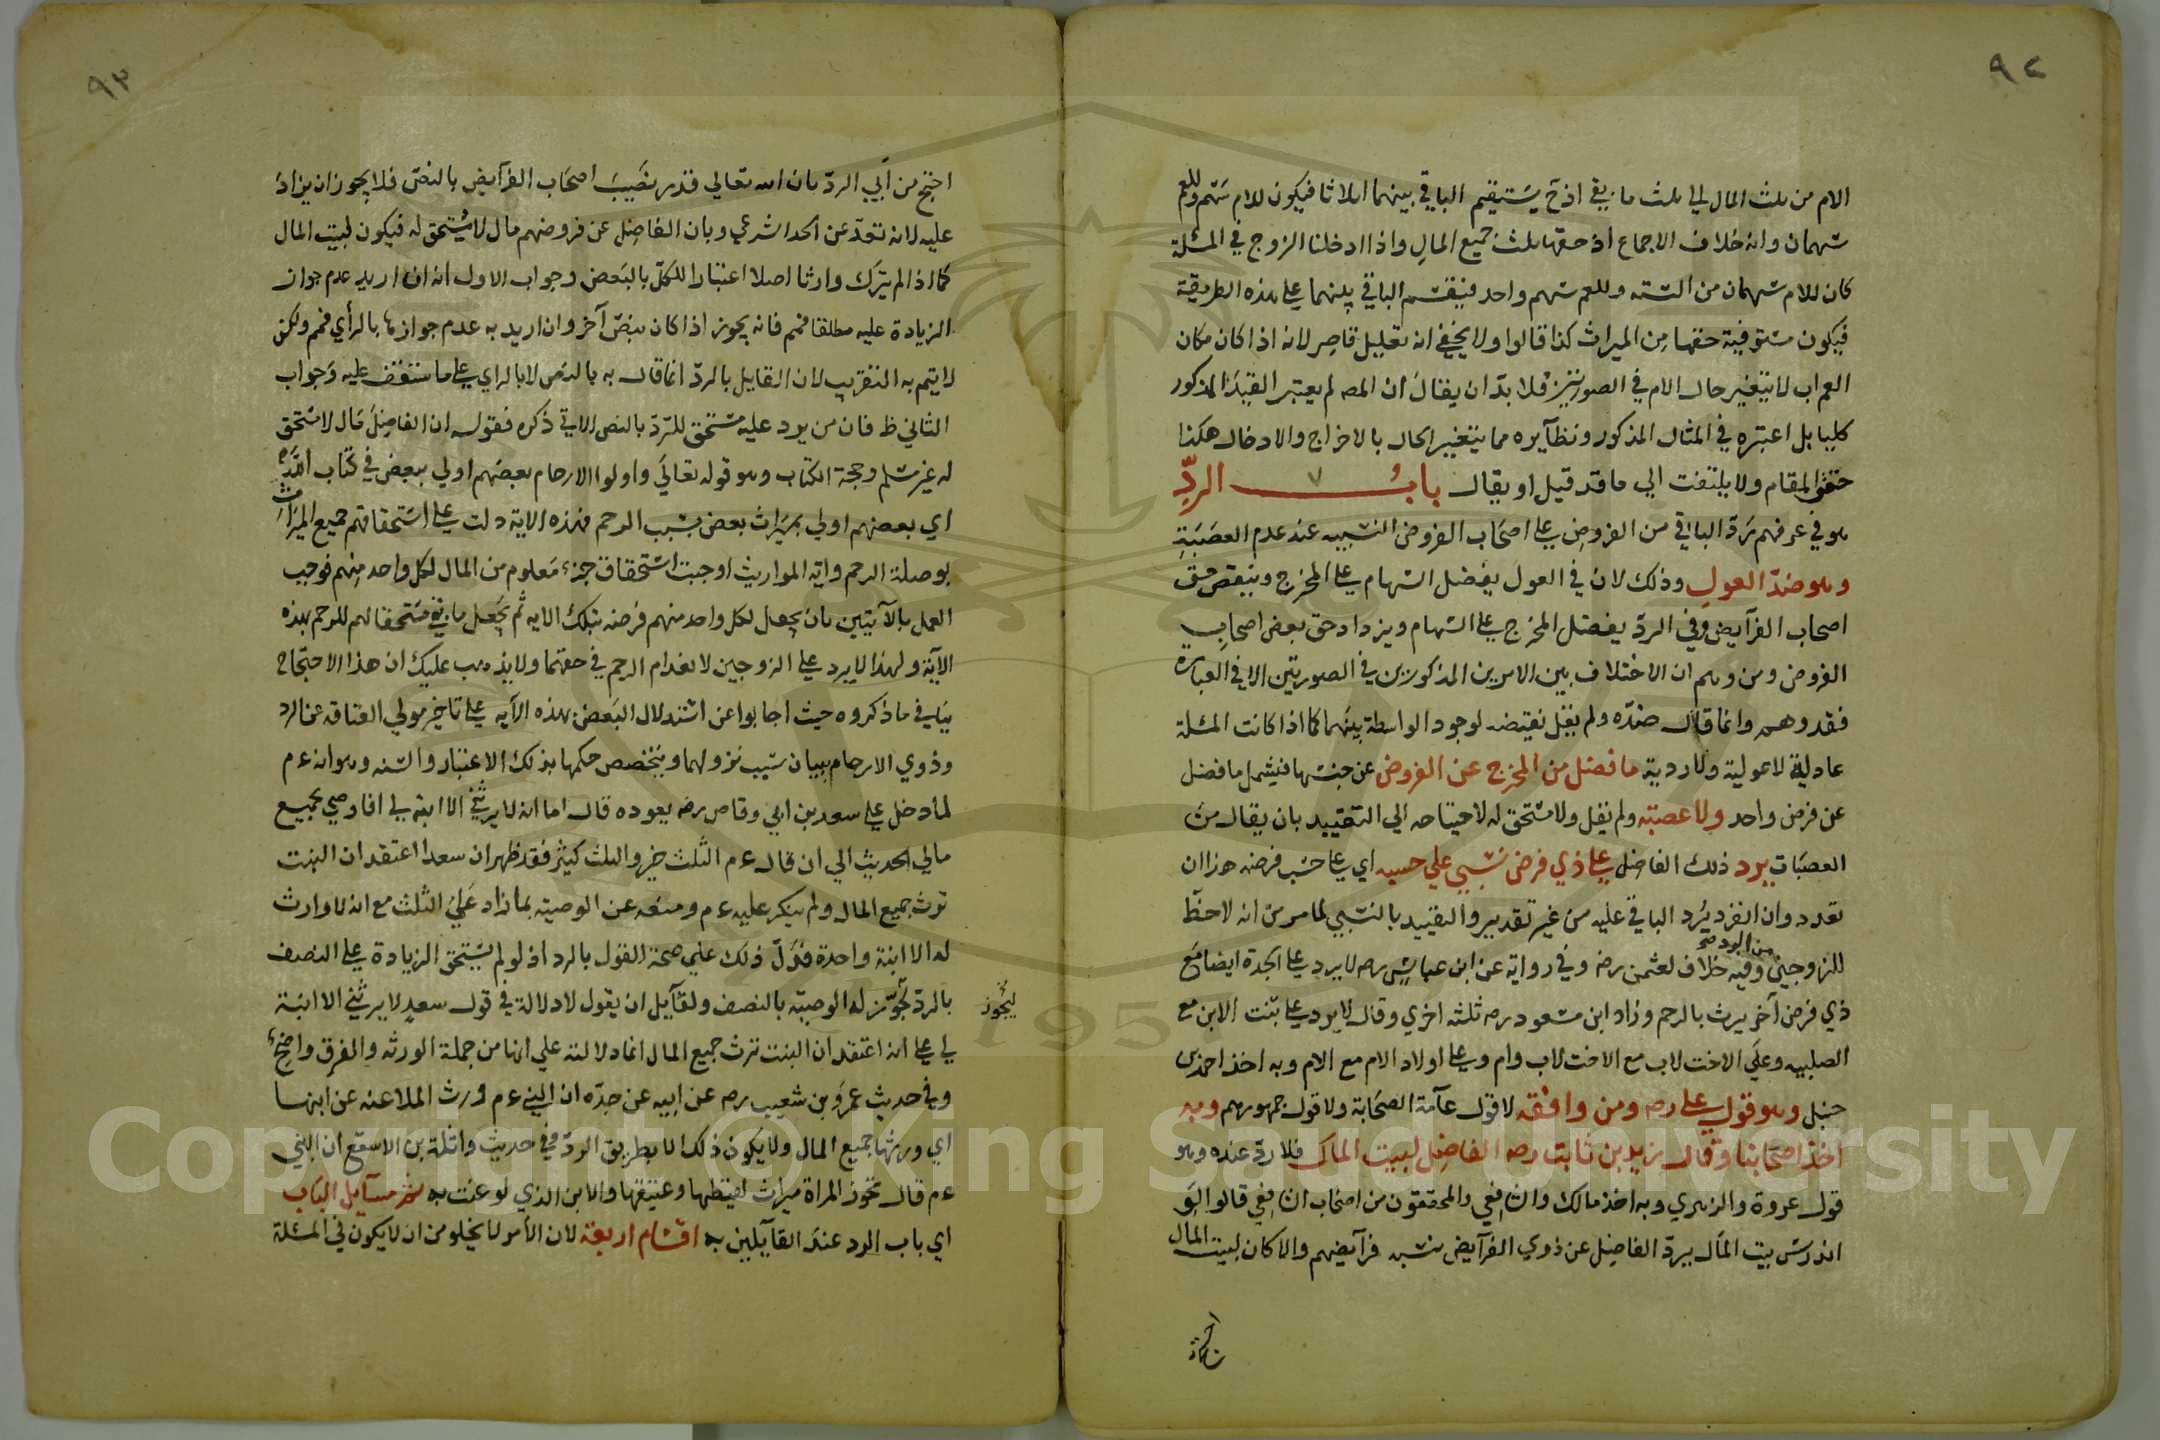 ٩٢
الام من ثلث المال الي ثلث ما بقي اذ ح يستقيم الباقي بينهما اثلاثا فيكون للام سهم وللعم
سهمان وانه خلاف الاجماع اذ حقها ثلث جميع المال واذا ادخلنا الزوج في المسئلة
كان للام سهمان من الستة وللعم سهم واحد فينقسم الباقي بينهما علي هذه الطريقة
فيكون مستوفية حقها من الميراث كذا قالوا ولا يخفي انه تعليل قاصر لانه اذا كان مكان
العم اب لا يتغير حال الام في الصورتين فلا بد ان يقال ان المص لم يعتبر القيد المذكور
كليا بل اعتبره في المثال المذكور ونظآيره مما يتغير الحال بالاخراج والادخال هكذا
حقق المقام ولا يلتفت الي ما قد قيل او يقال باب الردّ
هو في عرفهم ردّ الباقي من الفروض علي اصحاب الفروض النسبيه عند عدم العصبة
وهو ضدّ العول وذلك لان في العول يفضل السهام علي المخرج وينقص حق
اصحاب الفرآيض وفي الردّ يفضل المخرج علي السهام ويزداد حق بعض اصحاب
الفروض ومن وهم ان الاختلاف بين الامرين المذكورين في الصورتين الا في العباره
فقد وهم وانما قال ضدّه ولم يقل نقيضه لوجود الواسطة بينهما كما اذا كانت المسئلة
عادلية لا عولية ولا ردية ما فضل من المخرج عن الفروض عن جنسها فيشمل ما فضل
عن فرض واحد ولا عصبة ولم يقل ولا مستحق له لاحتياجه الي التقييد بان يقال من
العصبات يرد ذلك الفاضل علي ذي فرض نسبي علي حسبه اي علي حسب فرضه هذا ان
تعدد وان انفرد يرد الباقي عليه من غير تقدير والتقييد بالنسبي لما مر من انه لا حظّ
للزوجين من الرد صح وفيه خلاف لعثمن رضه وفي روايه عن ابن عباس رضه لا يرد علي الجدة ايضا مع
ذي فرض آخر يرث بالرحم وزاد ابن مسعود رضه ثلثه اخري وقال لا يرد علي بنت الابن مع
الصلبيه وعلي الاخت لاب مع الاخت لاب وام وعلي اولاد الام مع الام وبه اخذ احمد بن
حنبل وهو قول علي رضه ومن وافقه لا قول عآمة الصحابة ولا قول جمهورهم وبه
اخذ اصحابنا وقال زيد بن ثابت رضه الفاضل لبيت المال فلا ردّ عنده وهو
قول عروة والزهري وبه اخذ مالك والشافعي والمحققون من اصحاب الشافعي قالوا لو
اندرس بيت المال يردّ الفاضل عن ذوي الفرآيض بنسبه فرآيضهم والا كان لبيت المال
٩٣
احتج من أبي الردّ بان الله تعالي قدر نصيب اصحاب الفرآيض بالنصّ فلا يجوز ان يزاد
عليه لانه تعدّ عن الحد الشرعي وبان الفاضل عن فروضهم مال لا يستحق له فيكون لبيت المال
كما اذا لم يترك وارثا اصلا اعتبارا للكلّ بالبعض وجواب الاول انه ان اريد عدم جواز
الزيادة عليه مطلقا فمم فانه يجوز اذا كان بنصّ آخر وان اريد به عدم جوازها بالرأي فمم ولكن
لا يتم به التقريب لان القايل بالردّ انما قال به بالنص لا بالراي علي ما ستقف عليه وجواب
الثاني ظ فان من يرد عليه مستحق للردّ بالنص الآتي ذكره فقوله ان الفاضل مال لا مستحق
له غير مسلم وحجة الكتاب وهو قوله تعالي واولوا الارحام بعضهم اولي ببعض في كتاب الله
اي بعضهم اولي بميراث بعض بسبب الرحم فهذه الاية دلت علي استحقاقهم جميع الميراث
بوصلة الرحم وايه المواريث اوجبت استحقاق جزء معلوم من المال لكل واحد منهم فوجب
العمل بالآيتين بان يجعل لكل واحد منهم فرضه بتلك الايه ثم يجعل ما بقي مستحقا لهم للرحم بهذه
الآية ولهذا لا يرد علي الزوجين لانعدام الرحم في حقهما ولا يذهب عليك ان هذا الاحتجاج
ينافي ما ذكروه حيث اجابوا عن استدلال البعض بهذه الآيه علي تاخير مولي العتاقه عن الرد
وذوي الارحام ببيان سبب نزولهما ويتخصص حكمها بذلك الاعتبار والسنه وهو انه ءم
لما دخل علي سعد بن ابي وقاص رضه يعوده قال اما انه لا يرثني الا ابنة لي افاوصي بجميع
مالي الحديث الي ان قال ءم الثلث خير والثلث كثير فقد ظهر ان سعدا اعتقد ان البنت
ترث جميع المال ولم ينكر عليه ءم ومنعه عن الوصية بما زاد علي الثلث مع انه لا وارث
له الا ابنة واحدة فدلّ ذلك علي صحة القول بالرد اذ لو لم يستحق الزيادة علي النصف
بالردّ لجوّز له الوصيّه بالنصف ولقآيل ان يقول لا دلالة في قول سعد لا يرثني الا ابنة
ليجوز
لي علي انه اعتقد ان البنت ترث جميع المال انما دلالته علي انها من جملة الورثه والفرق واضح
وفي حديث عمرو بن شعيب رضه عن ابيه عن جدّه ان النبي ءم ورث الملاعنه عن ابنها
اي ورثها جميع المال ولا يكون ذلك الا بطريق الردّ وفي حديث واثلة بن الاسقع ان النبي
ءم قال تحوز المراة ميراث لقيطها وعتيقها والابن الذي لوعنت به ثم مسآيل الباب
اي باب الرد عند القآيلين به اقسام اربعة لان الأمر لا يخلو من ان لا يكون في المسئلة